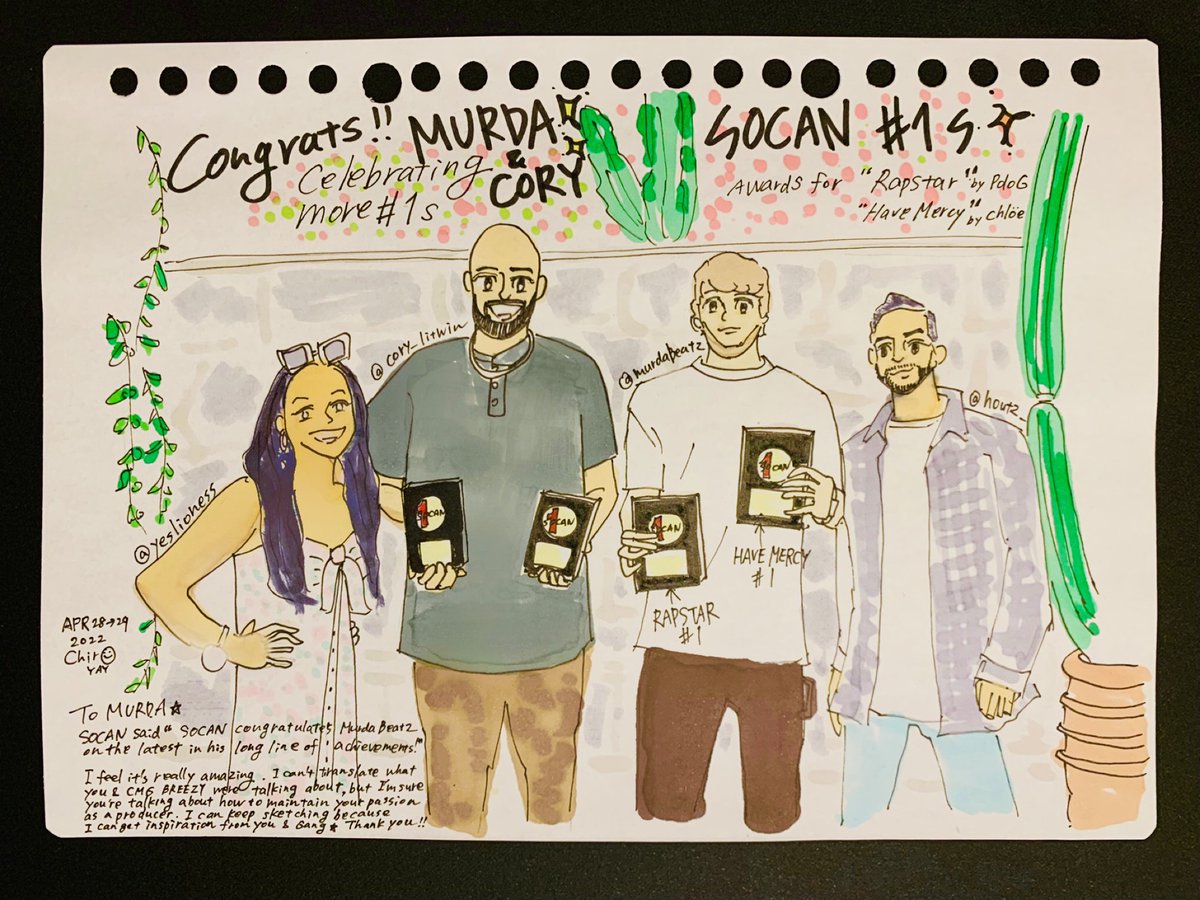 Congrats!! MURDA
& CORY
Celebrating
more #1s
SOCAN #1s
Awards for "Rapstar" by PdoG
"Have Mercy" by chlöe
@yeslioness
@cory_litwin
@murdabeatz
@houtz
1 SOCAN
1 SOCAN
1 SOCAN
1 SOCAN
HAVE MERCY
#1
RAPSTAR
#1
APR 28→29
2022
Chiro
YAY
To MURDA★
SOCAN said "SOCAN congratulates Murda Beatz
on the latest in his long line of achievements!"
I feel it's really amazing. I can't translate what
you & CMG BREEZY were talking about, but I'm sure
you're talking about how to maintain your passion
as a producer. I can keep sketching because
I can get inspiration from you & Gang★ Thank you!!